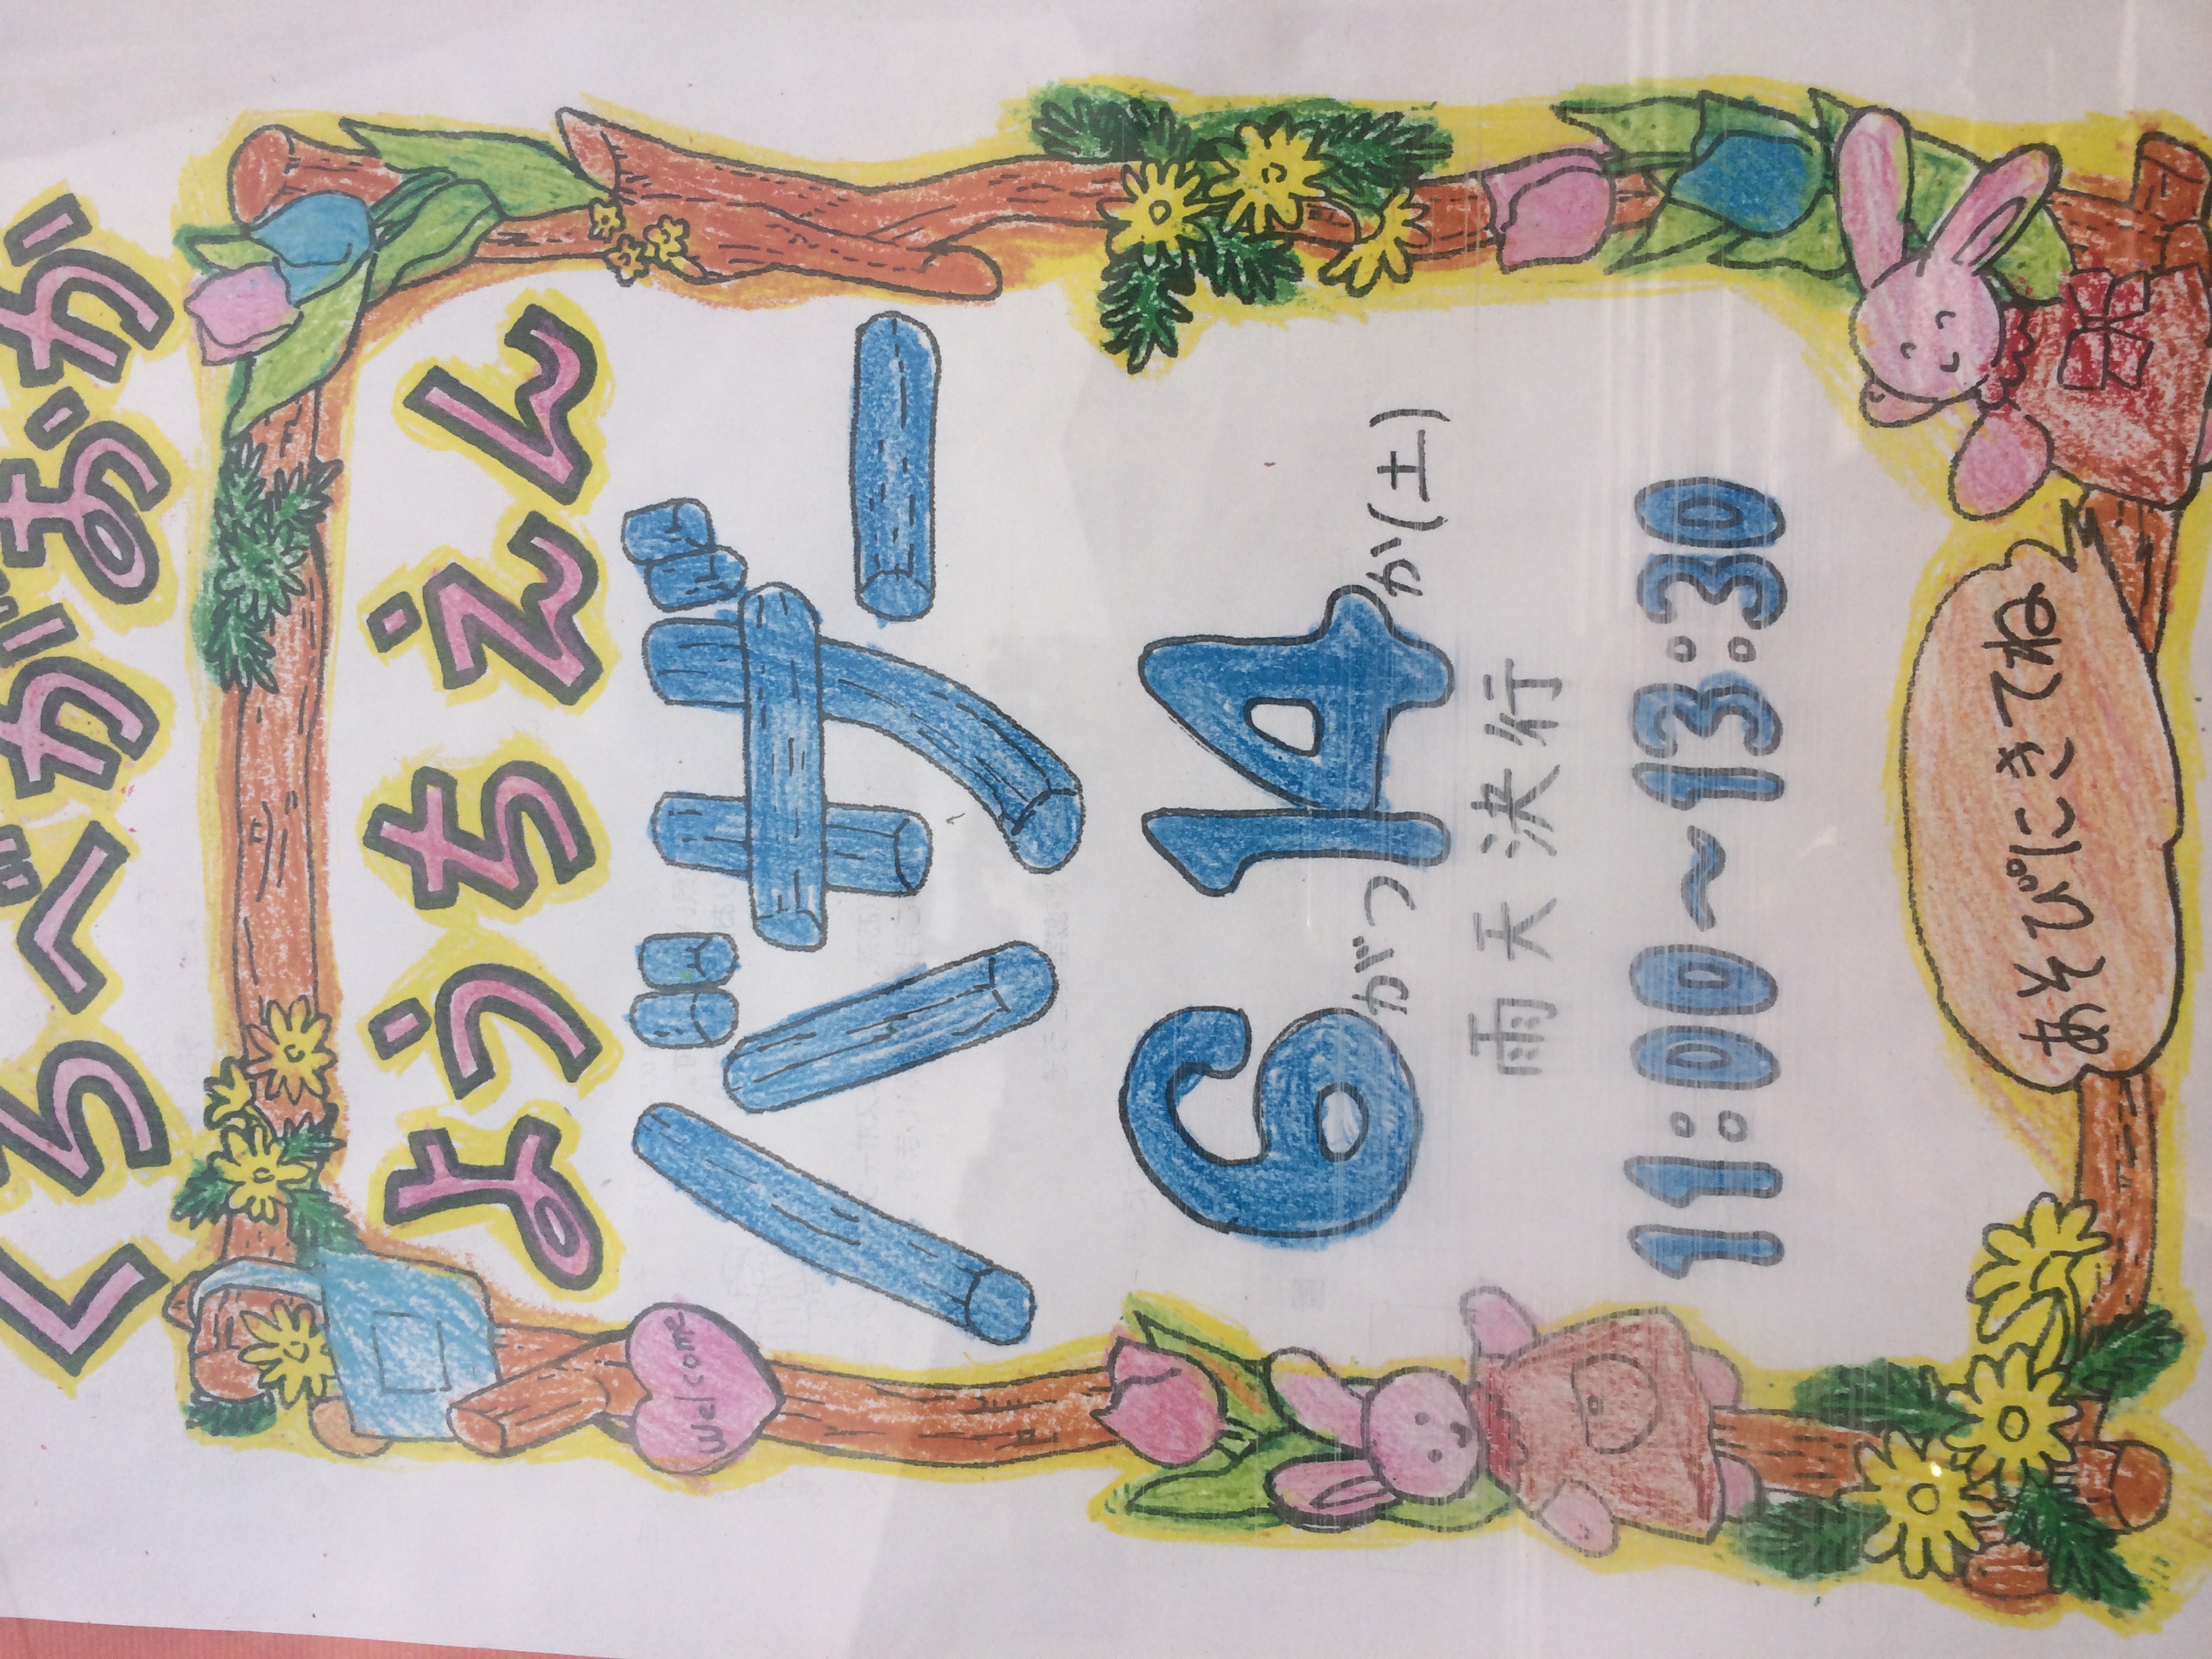 くらべがおか
ようちえん
バザー
6がつ14か(土)
雨天決行
11:00~13:30
あそびにきてね
Welcome